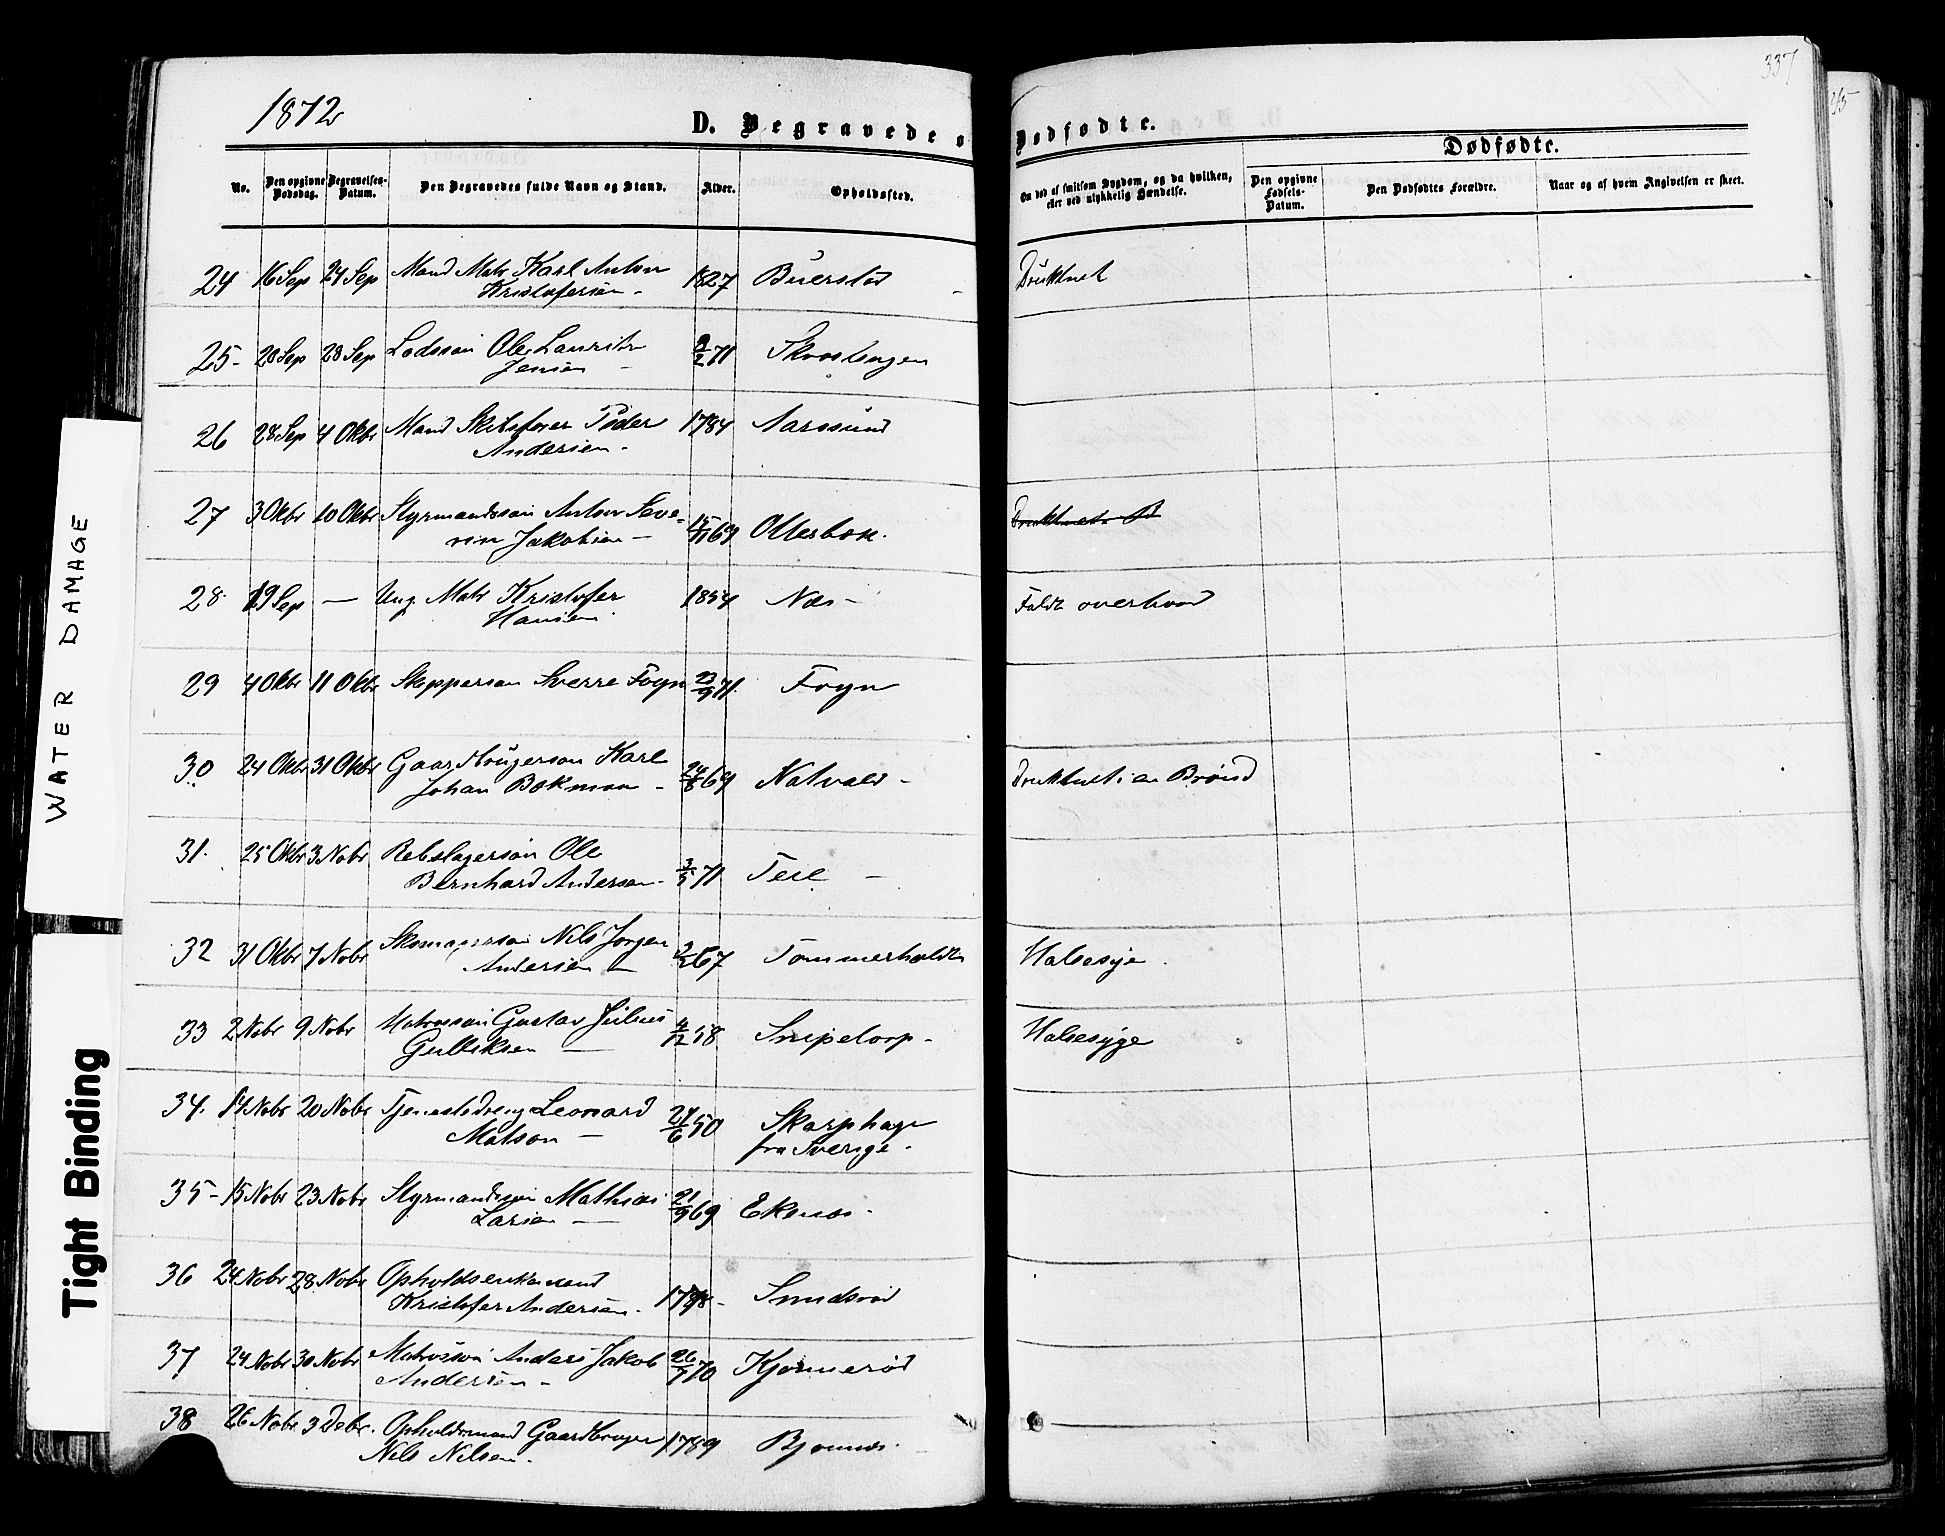 1872
337
D. Begravede o
Dødfødte.
Dødfødte.
No.
Den opgivne Dødsdag.
Begravelses-Datum.
Den Begravedes fulde Navn og Stand.
Alder.
Opholdssted.
Om død af smitsom Sygdom, og da hvilken,
eller ved ulykkelig Hændelse.
Den opgivne Fødsels-Datum.
Den Dødfødtes Forældre.
Naar og af hvem Angivelsen er skeet.
24 16 Sep 24 Sep Mand Matr Karl Anton 1827 Buerstad Druknet
Kristofersen -
25- 20 Sep 28 Sep Lodssøn Ole Lauritz 71
Jensen -
26 28 Sep 4 Oktbr Mand Skibsfører Peder 1784 Aarssund
Andersen -
27 3 Oktbr 10 Oktbr Styrmandssøn Anton Seve-
rin Jakobsen - 15/11 69 Otterbæk. Druknet
28 19 Sep — Ung. Matr Kristofer 1854 Næs - Faldt overbord
Hansen
29 4 Oktbr 11 Oktbr Skippersøn Sverre Foyn 23/9 71. Foyn
30 24 Oktbr 31 Oktbr Gaardbrugersøn Karl
Johan Bokman - 24/8 69 Natvald - Druknet i en Brønd
31. 25 Oktbr 3 Nobr Rebslagersøn Ole
Bernhard Andersen - 3/5 71 Teie -
32 31 Oktbr 7 Nobr Skomagersøn Nils Jørgen
Andersen — 67 Tommerholdt Halssyge
33 2 Nobr 9 Nobr Matrossøn Gustav Julius
Gulliksen — 4/12 58 Snipetorp - Halsesyge
34. 14 Nobr 20 Nobr Tjenestedreng Leonard
Matson — 24/6 50 Skarphage
fra Sverige.
35- 15 Nobr 23 Nobr Styrmandssøn Mathias
Larsen — 21/9 69 Ekenæs.
36 24 Nobr 28 Nobr Opholdsenkemand
Kristofer Andersen. Sundsrød
37 24 Nobr 30 Nobr Matrossøn Anders Jakob 26/7 70 Kjønnerød
Andersen -
38 26 Nobr 3 Debr. Opholdsmand Gaardbruger 1789 Bjønnes.
Nils Nilsen.
WATER DAMAGE
Tight Binding